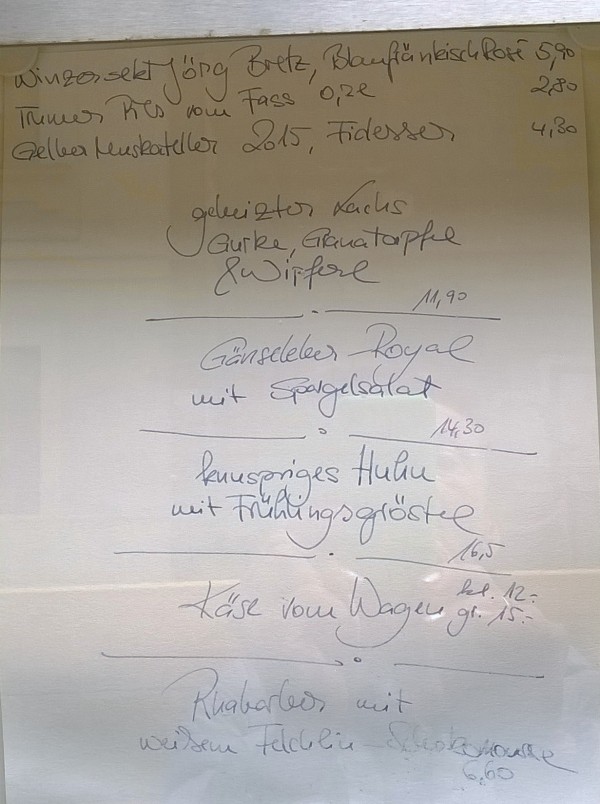 Winzersekt Jörg Bretz, Blaufränkisch Rosé 5,90
Trumer Pils vom Fass 0,2l 2,80
Gelber Muskateller 2015, Fidesser 4,30
gebeizter Lachs
Gurke, Granatapfel
& Wipferl
11,90
Gänseleber-Royal
mit Spargelsalat
14,30
knuspriges Huhn
mit Frühlingsgröstel
16,5
Käse vom Wagen kl. 12.-
gr. 15.-
Rhabarber mit
weißem Felchlin-Schokomousse
6,60